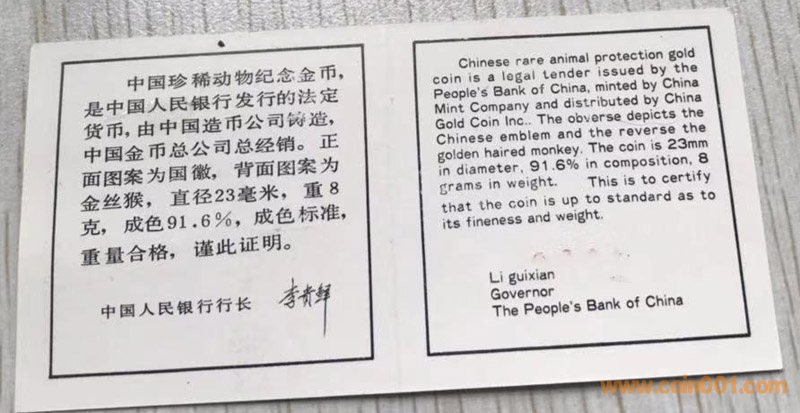 中国珍稀动物纪念金币，
是中国人民银行发行的法定
货币，由中国造币公司铸造，
中国金币总公司总经销。正
面图案为国徽，背面图案为
金丝猴，直径23毫米，重8
克，成色91.6%，成色标准，
重量合格，谨此证明。
中国人民银行行长 李贵鲜
Chinese rare animal protection gold
coin is a legal tender issued by the
People's Bank of China, minted by China
Mint Company and distributed by China
Gold Coin Inc.. The obverse depicts the
Chinese emblem and the reverse the
golden haired monkey. The coin is 23mm
in diameter, 91.6% in composition, 8
grams in weight. This is to certify
that the coin is up to standard as to
its fineness and weight.
Li guixian
Governor
The People's Bank of China
www.coin001.com